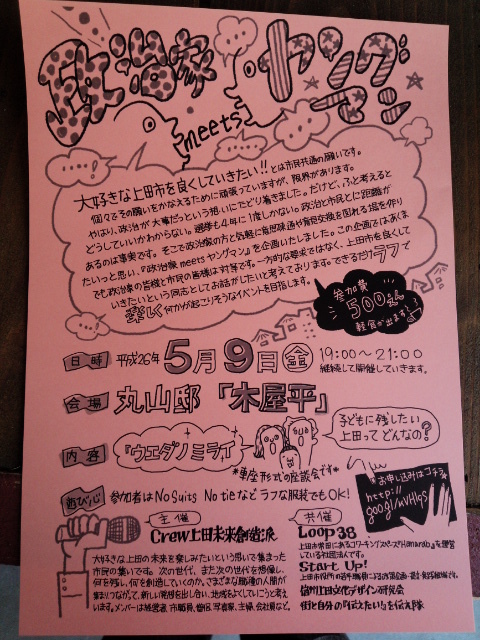 政治家
meets
ヤングマン
大好きな上田市を良くしていきたい!!とは市民共通の願いです。
個々でその願いをかなえるために頑張っていますが、限界があります。
やはり、政治が大事だっという想いにたどり着きました。だけど、ふと考えると
どうしていいかわからない。選挙も4年に1度しかない。政治と市民とに距離が
あるのは事実です。そこで政治家の方と気軽に意思疎通や意見交換を図れる場を作り
たいっと思い、『政治家meetsヤングマン』を企画いたしました。この企画ではあくま
でも政治家の皆様と市民の皆様は対等です。一方的な要求ではなく、上田市を良くして
いきたいという同志としてお話がしたいと考えております。できるだけラフで
楽しく何かが起こりそうなイベントを目指します。
参加費
500円
軽食が出ます!
日時 平成26年 5月9日(金) 19:00〜21:00
継続して開催していきます。
会場 丸山邸「木屋平」
内容 『ウエダノミライ』
子どもに残したい
上田ってどんなの?
*車座形式の座談会です*
遊び心 参加者はNo Suits No tieなどラフな服装でもOK!
お申し込みはコチラ
http://
goo.gl/
主催
Crew上田未来創造派
大好きな上田の未来を楽しみたいという思いで集まった
市民の集いです。次の世代、また次の世代を想像し、
何を残し、何を創造していくのか。さまざまな職種の人間が
集まりつながって、新しい発想を出し合い、地域をよくしていこうと考えて
います。メンバーは経営者、市職員、僧侶、写真家、主婦、会社員など。
共催
Loop38
上田市常田にあるコワーキングスペースHanaLabを運営
している社団法人です。
Start Up!
上田市役所の若手職員による
信州上田文化デザイン研究会
街と自分の『伝えたい』を伝え隊